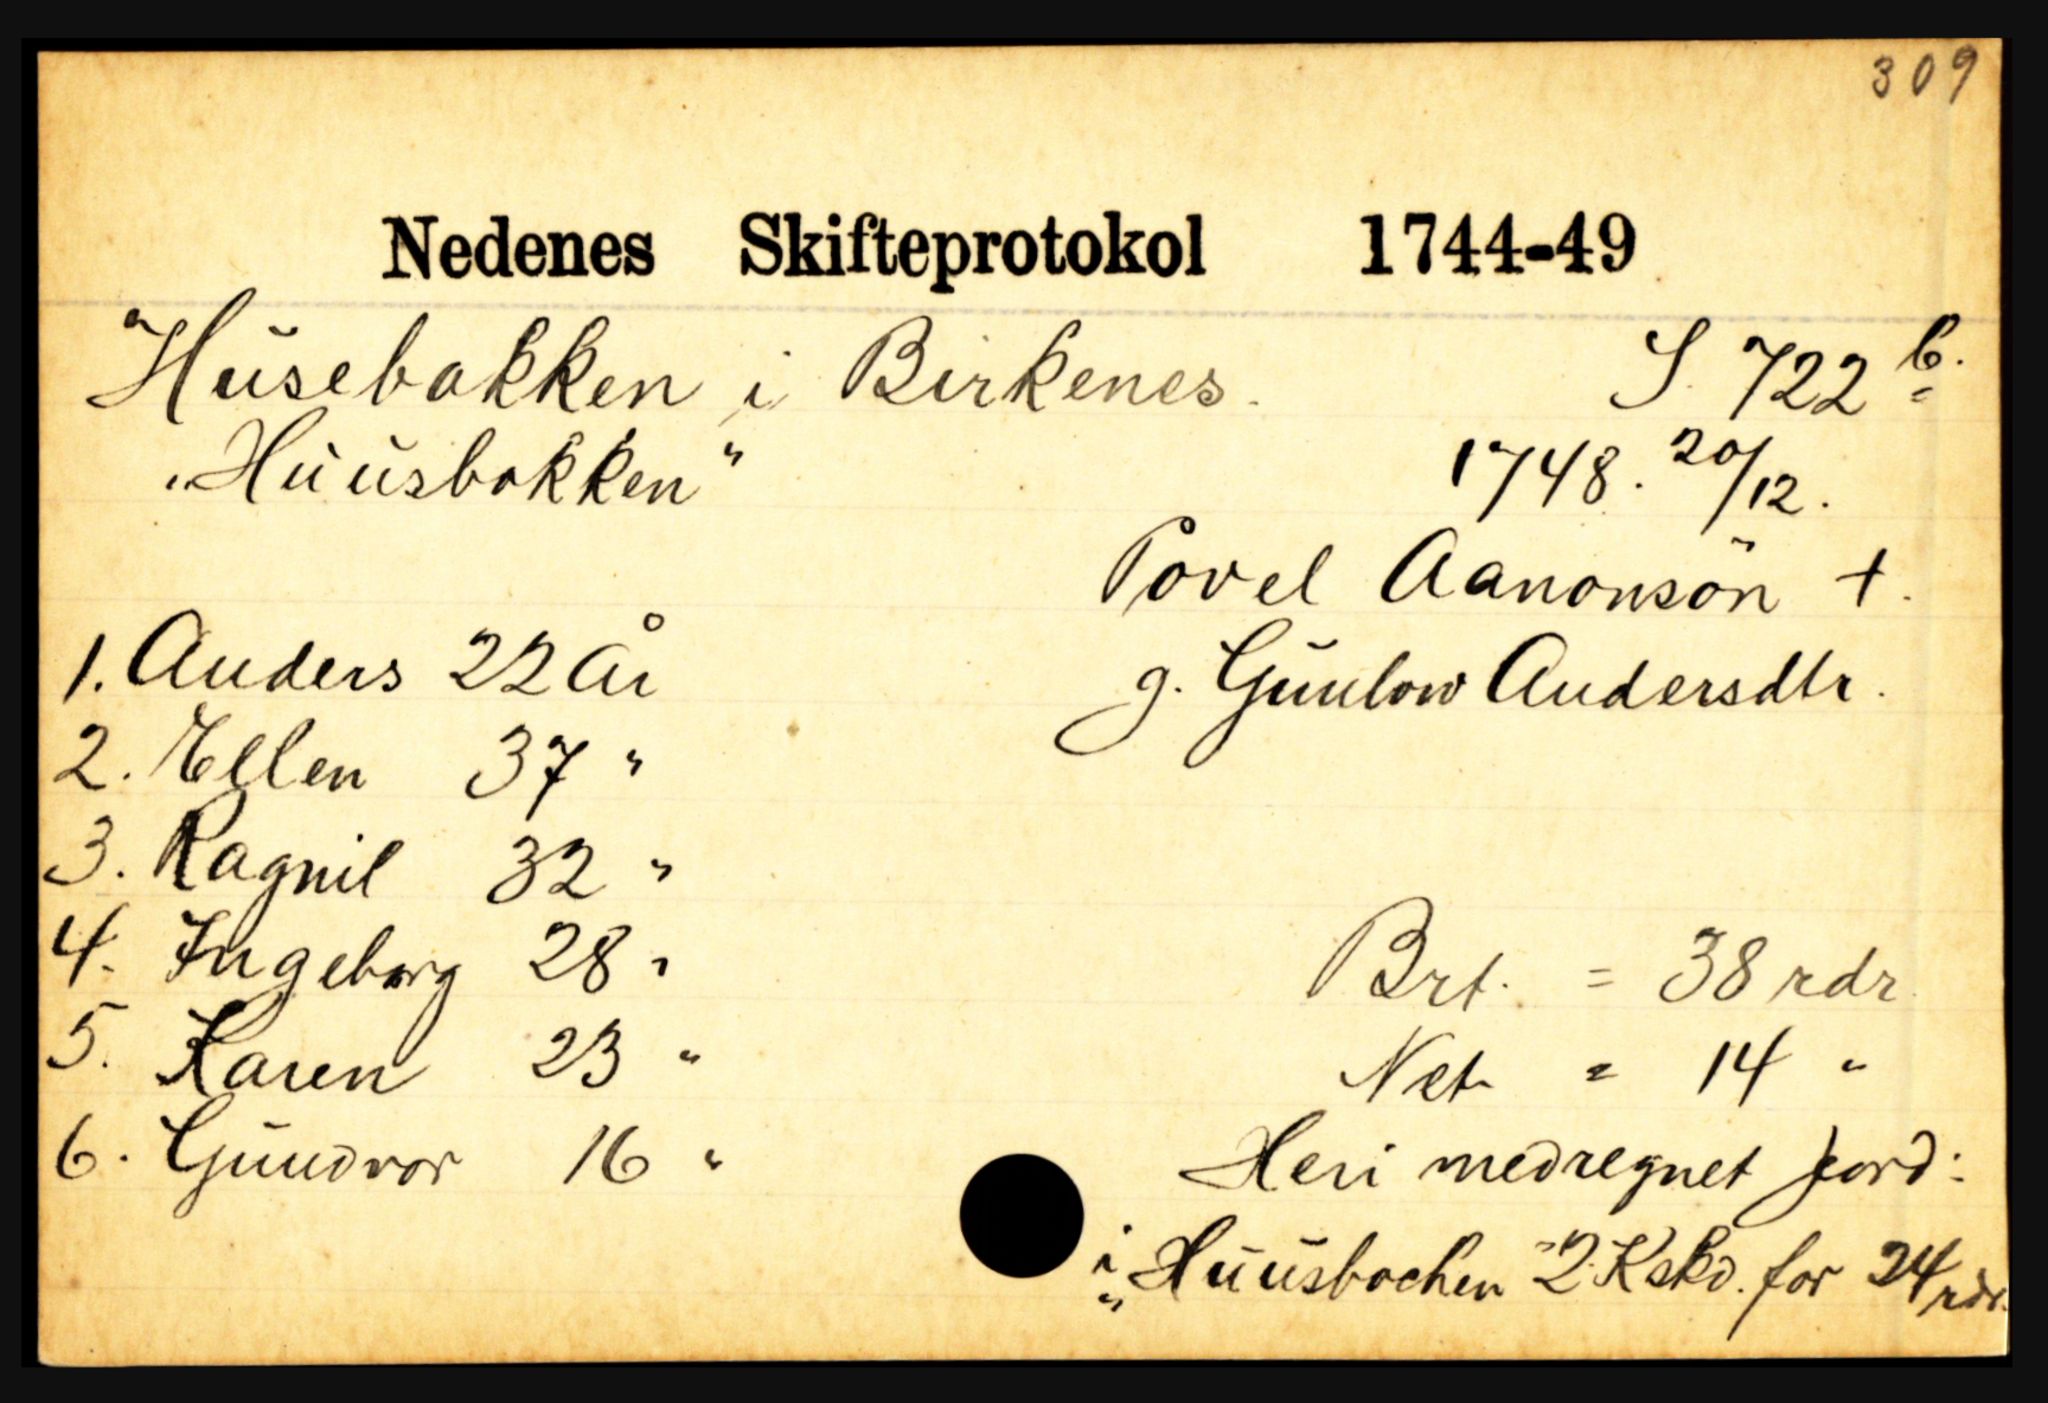 309
Nedenes Skifteprotokol 1744-49
Husebakken i Birkenes. S. 722 b.
"Huusbakken" 1748. 20/12.
Povel Aanonsön +.
1. Anders 22 År g. Gunlow Andersdtr.
2. Ellen 37 "
3. Ragnil 32 "
4. Ingeborg 28 "
5. Karen 23 "
6. Gundvor 16 "
Brt. = 38 rdr
Net = 14 "
Heri medregnet jord:
i "Huusbachen" 2 Kskd. for 24 rdr.